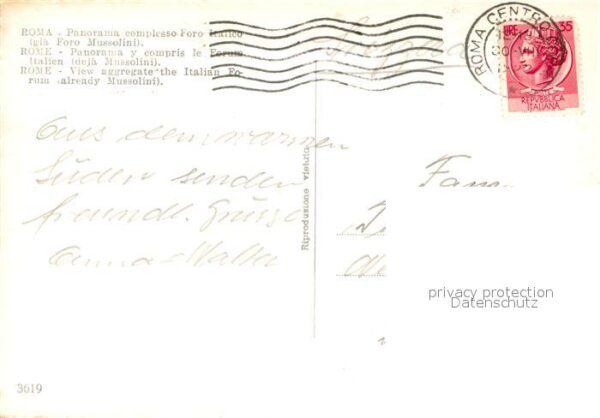 ROMA - Panorama complesso Foro Italico
(già Foro Mussolini).
ROME - Panorama y compris le Forum
Italien (dejà Mussolini).
ROME - View aggregate the Italian Fo-
rum (already Mussolini).
ROMA CENTRO
35
REPVBBLICA
ITALIANA
Aus dem warmen
Süden senden
freundl. Grüsse
Riproduzione vietata
Fam.
privacy protection
Datenschutz
3619